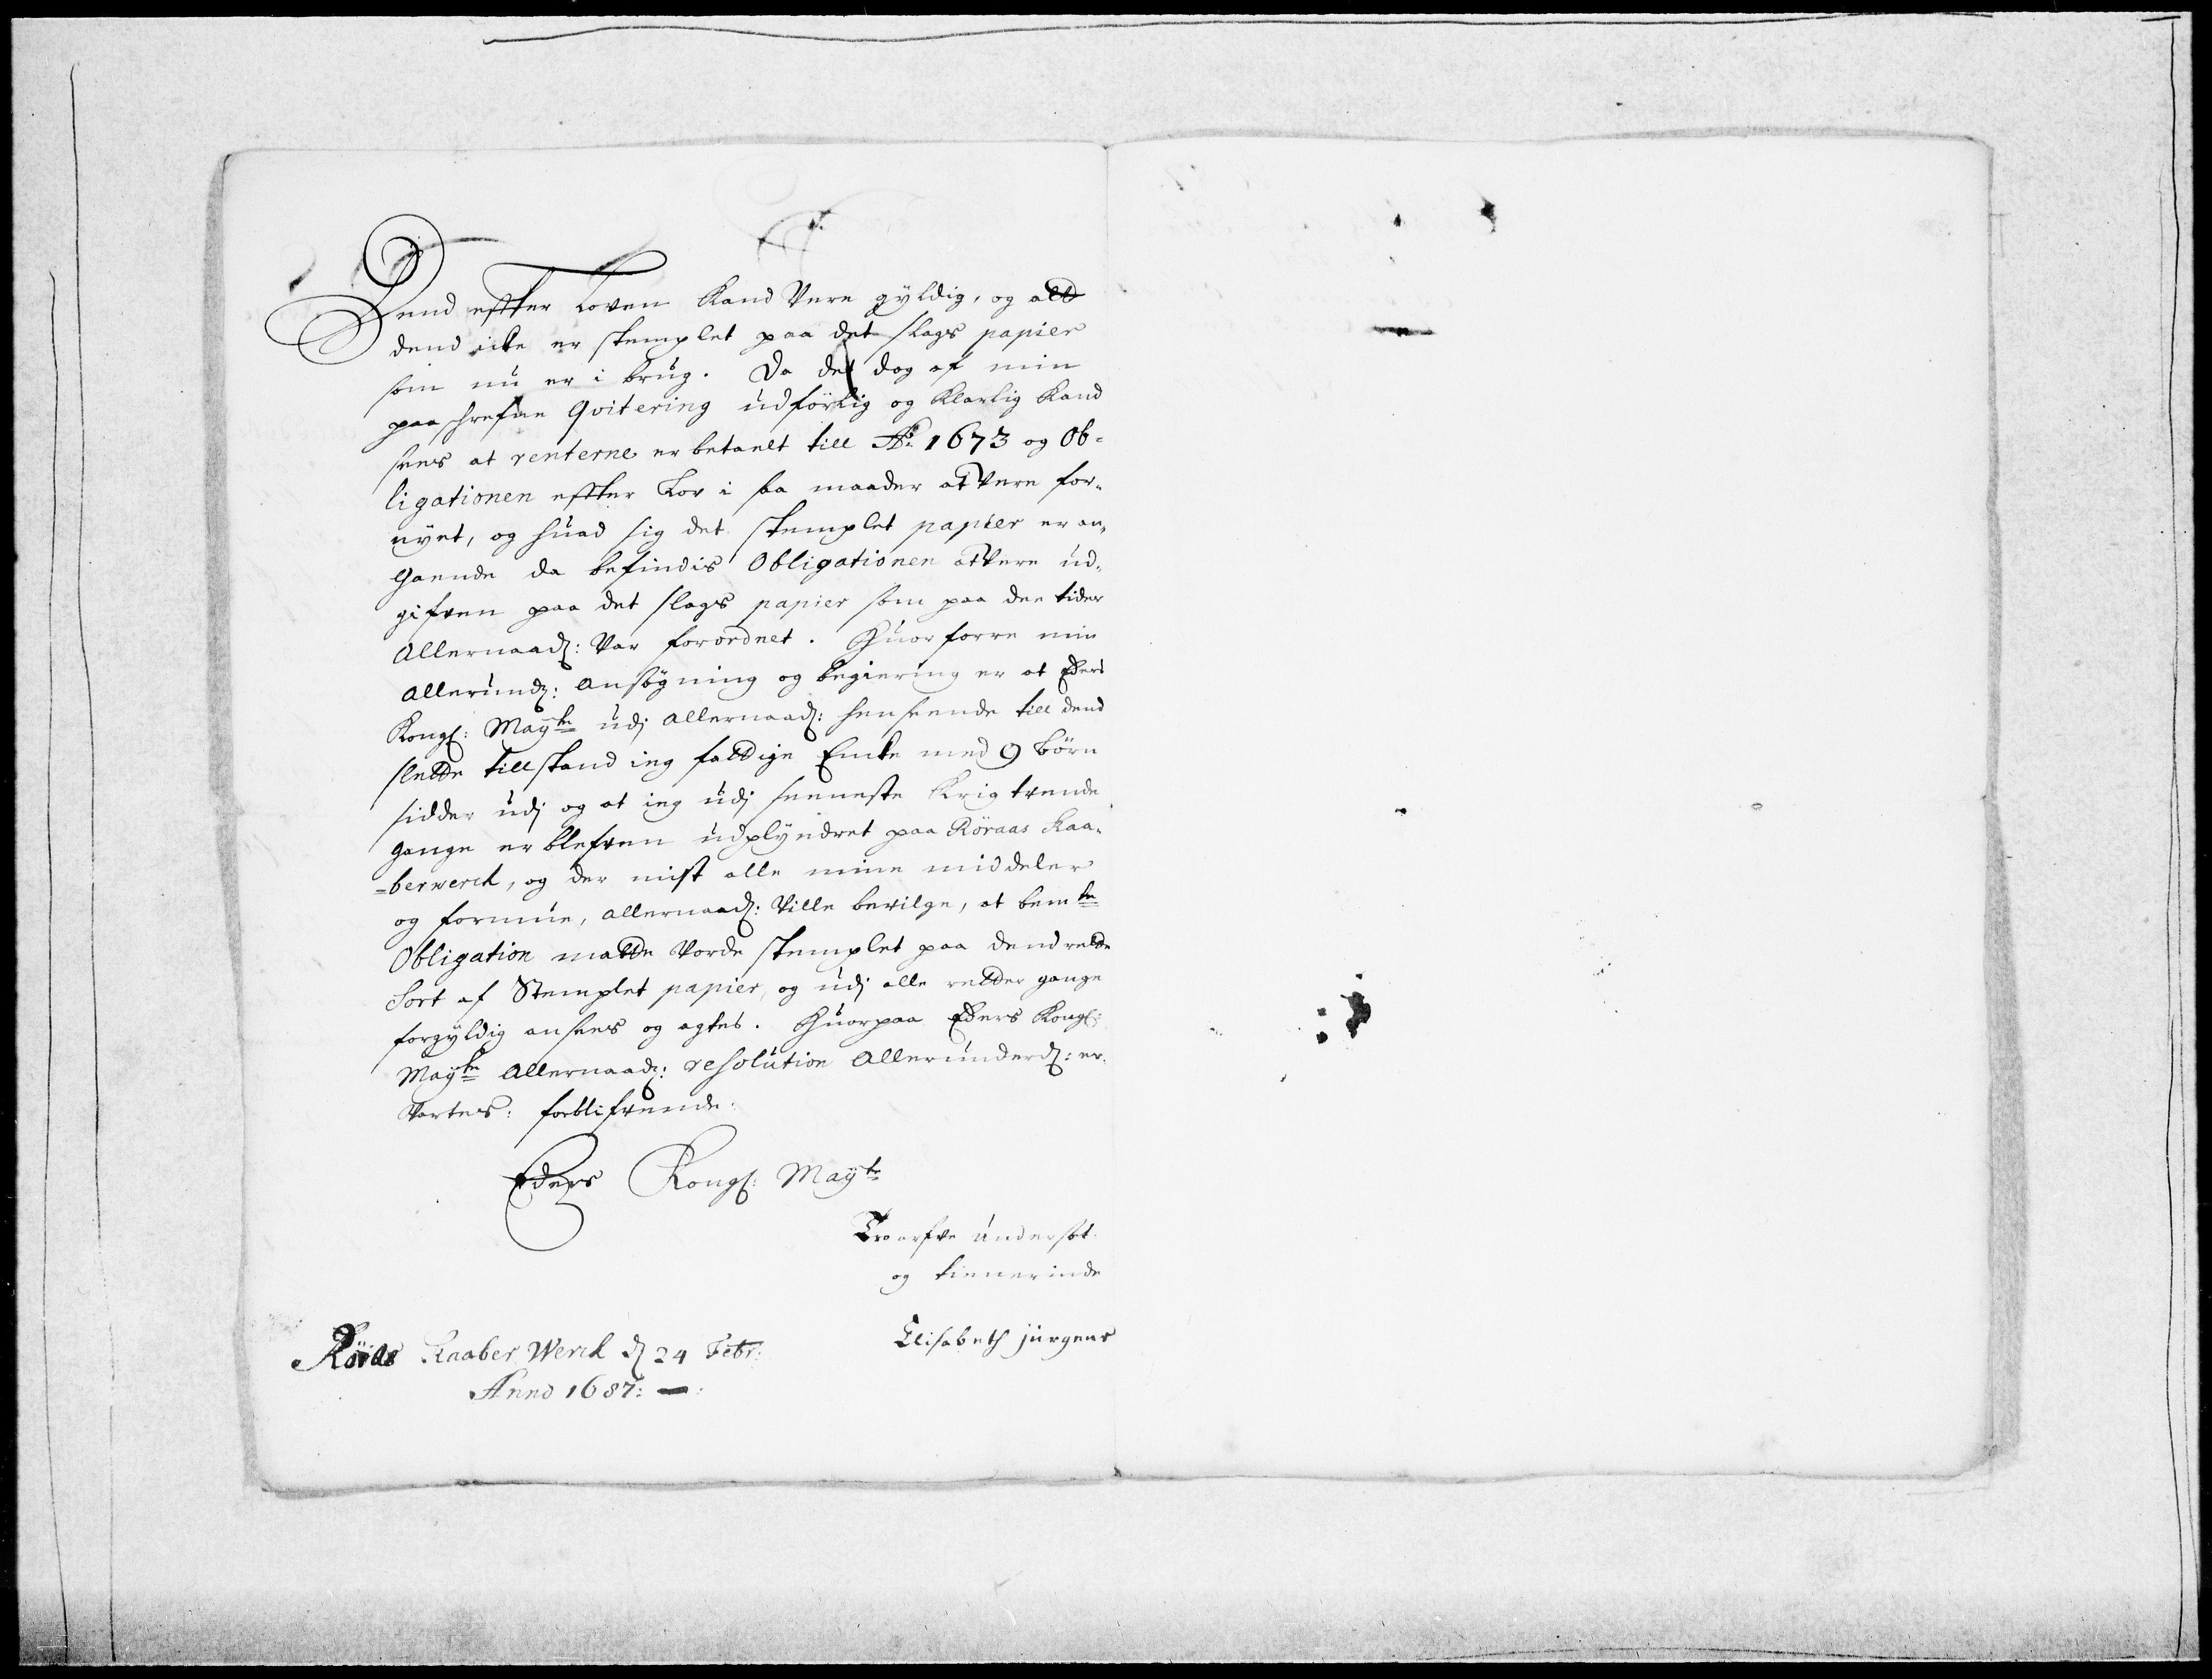 Dend effter Loven kand Vere gyldig, og att
dend icke er stemplet paa det slags papier
som nu er i brug. Da det dog af min
paaschrefne Qvitering udförlig og klarlig kand
sees at renterne er betaelt till Ao: 1673 og Ob=
ligationen effter Lov i saa maader at Vere for-
nyet, og huad sig det stemplet papier er an-
gaende da befindis Obligationen at Vere ud-
gifven paa det slags papier som paa dee tider
Allernaad: Var forordnet. Huorforre min
allerund: Ansögning og begiering er at Eders
Kongl: Mayts udj allernaad: henseende till dend
slette tillstand ieg fattige Encke med 9 börn
sidder udj og at ieg udj seeneste Krig trende
gange er blefven udplyndret paa Röraas Kaa-
=berwerck, og der mist alle mine middeler
og formue, allernaad: Ville bevilge, at bemte
Obligation matte Vorde stemplet paa dend rette
Sort af Stemplet papier, og udj alle retter gange
forgyldig ansees og agtes. Huorpaa Eders Kongl:
Mayts Allernaad: resolution Allerunderd: er-
Vartes: forblifvende:
Eders Kongl: Mayts
Troarfve undersåt
og tienerinde
Elisabeth jürgens
Röräs Kaaber Werck d 24 Febr:
Anno 1687: —: